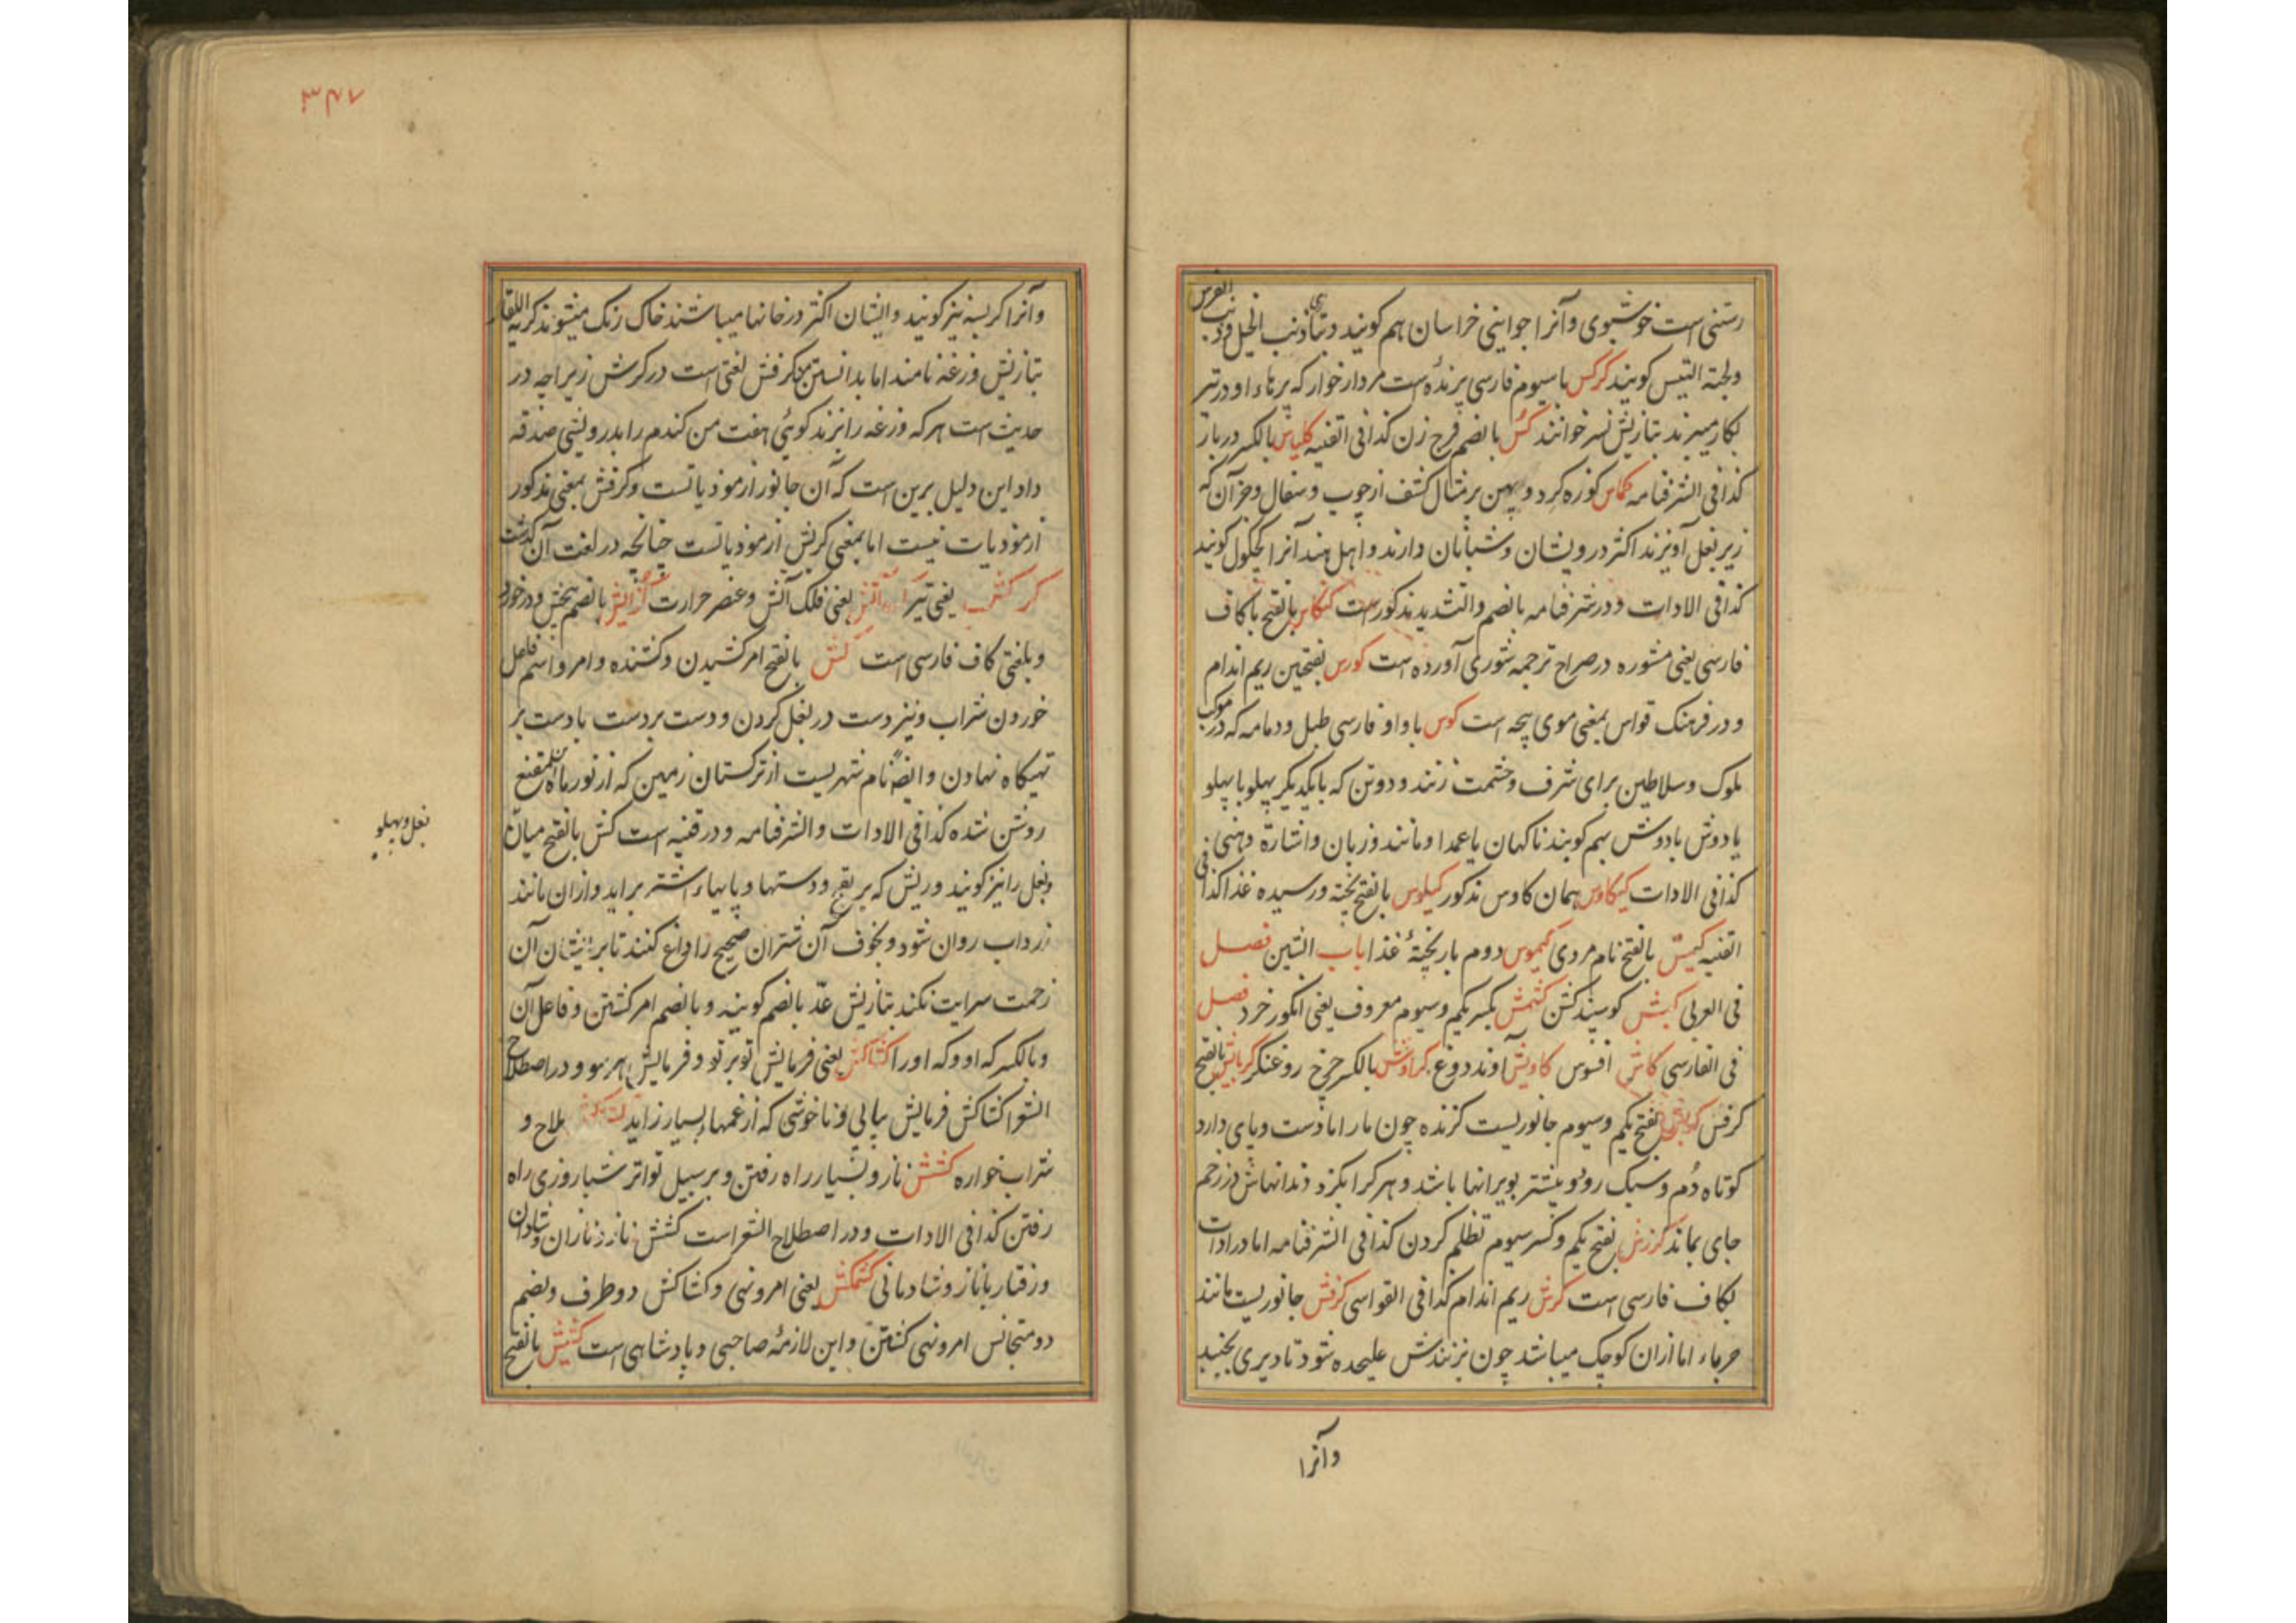 رستنی است خوشبوی وآنرا جوانی خراسان هم کویند و بتازی ذنب الخیل و ذنب الفرس
ولحیة التیس کویند کرکس با سیوم فارسی پرنده است مردار خوار که پرهاء او در تیر
بکار میبرند بتازیش نسر خوانند کس بالضم فرج زن کذا فی القنیه کلیاس بالکسر دربار
کذا فی الشرفنامه کماس کوزه کرد و پهن بر مثال کشف از چوب و سفال و جز آن که
زیر بغل آویزند اکثر درویشان و شبانان دارند و اهل هند آنرا کجکول کویند
کذا فی الادات و در شرفنامه بالضم والتشدید مذکور است کنکاس بالفتح با کاف
فارسی یعنی مشوره در صراح ترجمه شوری آورده است کورس بفتحین ریم اندام
و در فرهنک قواس بمعنی موی پیچه است کوس با واو فارسی طبل و دمامه که در موکب
ملوک و سلاطین برای شرف و حشمت زنند و دوتن که بایکدیکر پهلو با پهلو
یا دوش با دوش بهم کوبند ناکهان یا عمدا و مانند و زبان و اشارة دهنی
کذا فی الادات کیکاوس همان کاوس مذکور کیلوس بالفتح پخته و رسیده غذا کذا فی
القنیه کیس بالفتح نام مردی کیموس دوم بار پختهٔ غذا باب الشین فصل
فی العربی کبش کوسپند کشن کشمش بکسر یکم و سیوم معروف یعنی انکور خرد فصل
فی الفارسی کاش افسوس کاویش آوند دوغ کراوش بالکسر چرخ روغنکر کرباش بالفتح
کرفس بفتح یکم و سیوم جانوریست کزنده چون مار اما دست و پای دارد
کوتاه دُم و سبک رو و بیشتر بویرانها باشد و هر کرا بکزد دندانهاش در زخم
جای بماند کرزش بفتح یکم و کسر سیوم تظلم کردن کذا فی الشرفنامه اما در ادات
بکاف فارسی است کرش ریم اندام کذا فی القواسی کرفش جانوریست مانند
حرباء اما ازان کوچک میباشد چون بزنندش علیحده شود تا دیری بجنبد
وآنرا
۳۴۷
وآنرا کربسه نیز کویند و ایشان اکثر در خانها میباشند خاک رنک میشوند کریه اللقا
بتازیش وزغه نامند اما بدانستن کرفش لغتی است در کرش زیراچه در
حدیث است هر که وزغه را بزند کوئی هفت من کندم را بدرویشی صدقه
داد این دلیل برین است که آن جانور از موذیاتست و کرفش بمعنی مذکور
از موذیات نیست اما بمعنی کربش از موذیاتست چنانچه در لغت آن کذشت
یعنی تیر یعنی فلک آتش و عنصر حرارت بالضم بخش و درخورد
و بلغتی کاف فارسی است کش بالفتح امر کشیدن و کشنده و امر و اسم فاعل
خوردن شراب و نیز دست در بغل کردن و دست بر دست با دست بر
تهیکاه نهادن و ایضا نام شهریست از ترکستان زمین که از نور ماه المقنع
روشن شده کذا فی الادات والشرفنامه و در قنیه است کش بالفتح میان
بغل و پهلو
و بغل را نیز کویند و ریش که بر و دستها و پایهاء اشتر براید و ازان مانند
زرداب روان شود و بخوف آن شتران صحیح را داغ کنند تا برایشان آن
زحمت سرایت نکند بتازیش عرّ بالضم کویند و بالضم امر کشتن و فاعل آن
و بالکسر که او و که او را کشاکش یعنی فرمایش توبرتو و فرمایش هر سو و در اصطلاح
الشعرا کشاکش فرمایش پیاپی و ناخوشی که از غمهاء بسیار زاید
شراب خواره کشش ناز و بسیار راه رفتن و بر سبیل تواتر شباروزی راه
رفتن کذا فی الادات و در اصطلاح الشعراست کشش ناز و نازان و شادان
و رفتار باناز و شادمانی کشمکش یعنی امر و نهی و کشاکش دو طرف و بضم
دو متجانس امر و نهی کشتن و این لازمهٔ صاحبی و پادشاهی است کشیش بالفتح